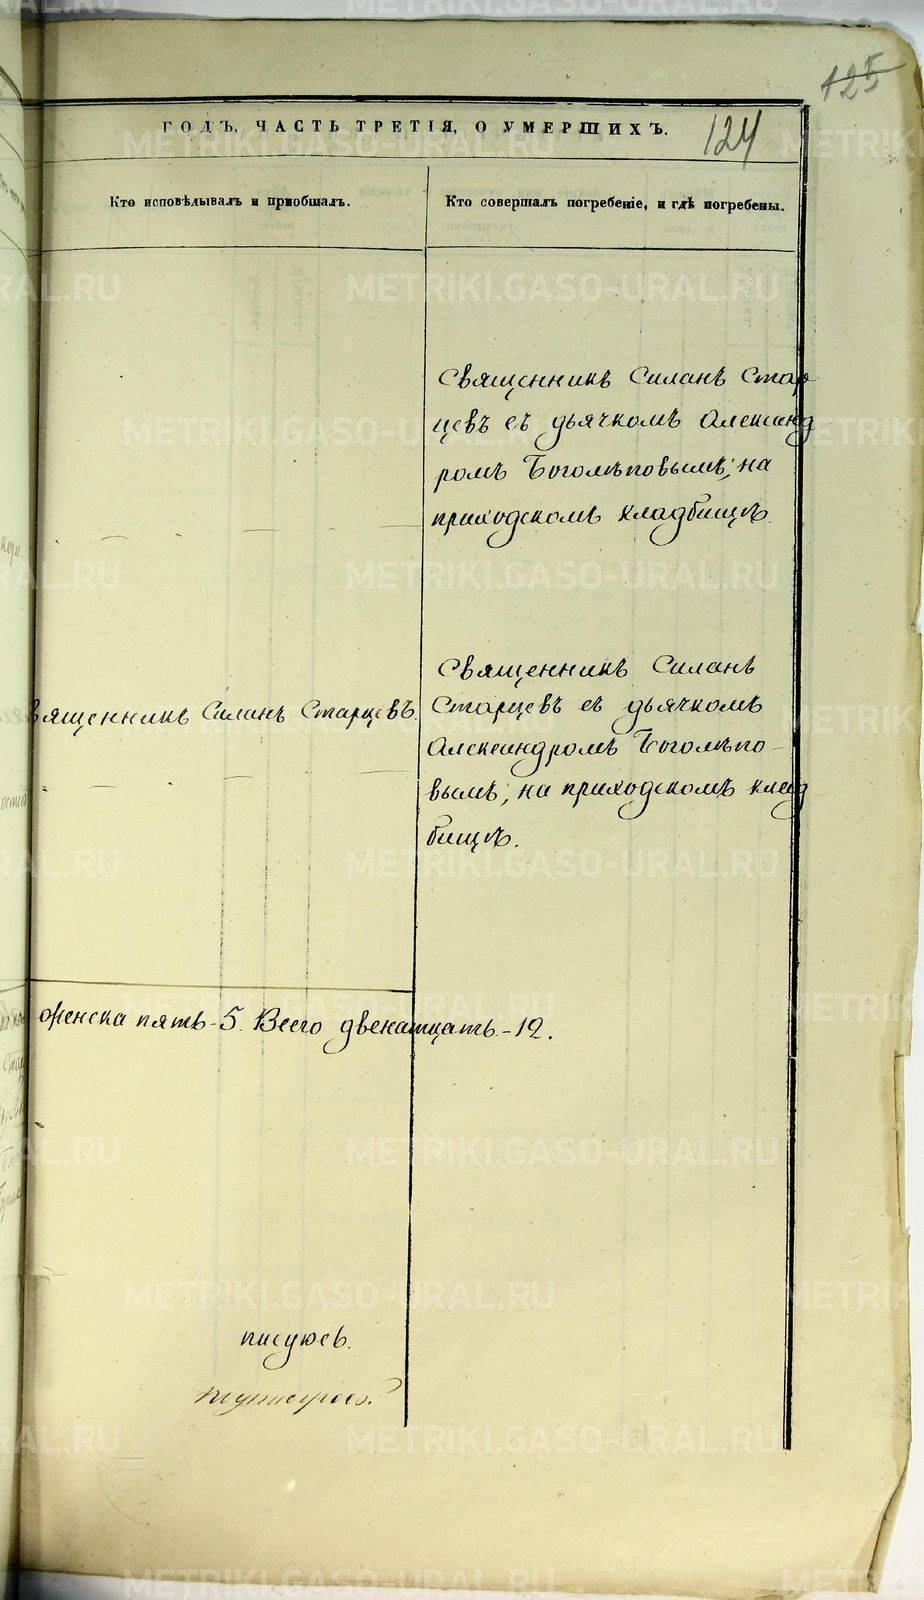 125
ГОДЪ, ЧАСТЬ ТРЕТІЯ, О УМЕРШИХЪ.
124
Кто исповѣдывалъ и пріобщалъ.
Кто совершалъ погребеніе, и гдѣ погребены.
Священникъ Силанъ Стар
цевъ съ дьячкомъ Александ
ромъ Боголѣповымъ; на
приходскомъ кладбищѣ
вященникъ Силанъ Старцевъ.
Священникъ Силанъ
Старцевъ съ дьячкомъ
Александромъ Боголѣпо-
вымъ; на приходскомъ клад
бищѣ.
женска пять - 5. Всего двенатцать - 12.
писуюсь.
METRIKI.GASO-URAL.RU